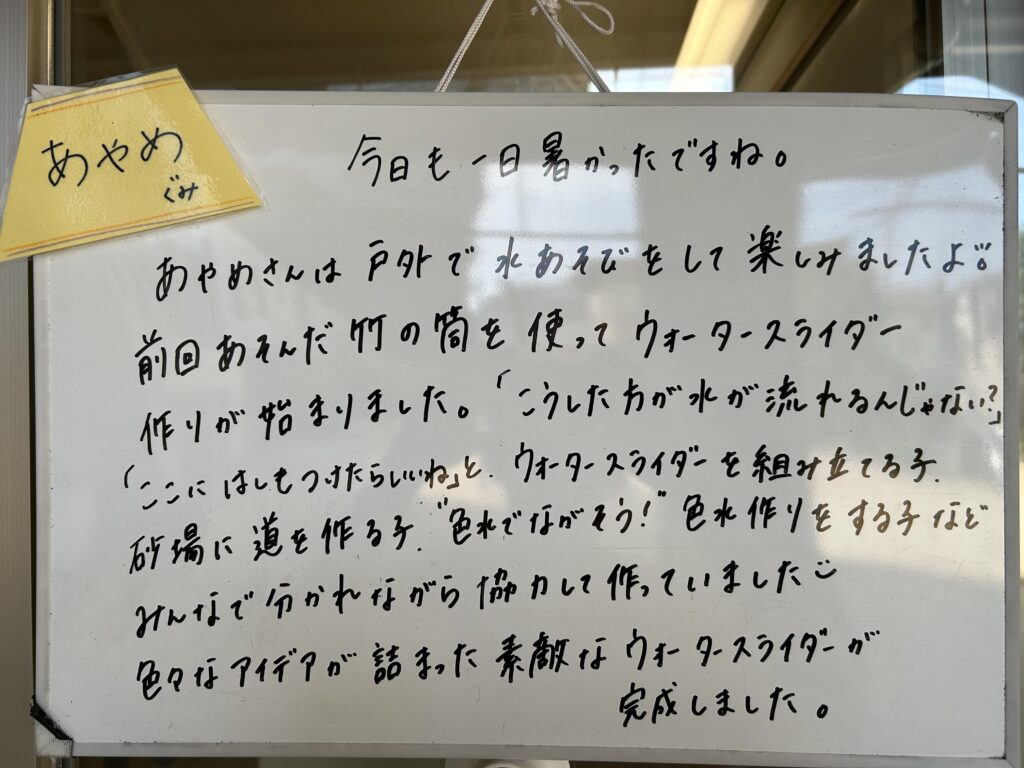 あやめ
ぐみ
今日も一日暑かったですね。
あやめさんは戸外で水あそびをして楽しみましたよ!!
前回あそんだ竹の筒を使ってウォータースライダー
作りが始まりました。「こうした方が水が流れるんじゃない?」
「ここにはしもつけたらいいね」と、ウォータースライダーを組み立てる子、
砂場に道を作る子、"色水でながそう!"色水作りをする子など
みんなで分かれながら協力して作っていました
色々なアイデアが詰まった素敵なウォータースライダーが
完成しました。